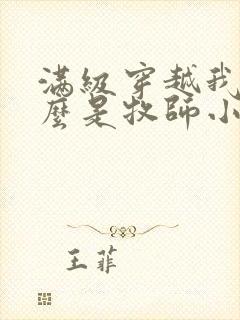 滿級穿越我
麼是牧師小
王菲